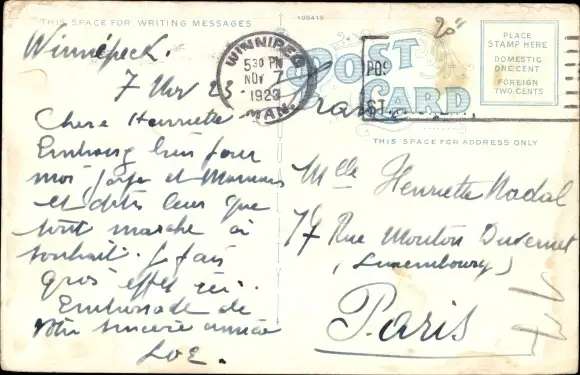 THIS SPACE FOR WRITING MESSAGES
106419
Winnipeck.
7 Nov 23.
Chère Henriette
Embrassez bien pour
moi papa et Maman
et dites leur que
tout marche à
souhait. Je fais
gros effet ici.
Embrassade de
votre sincère amie
WINNIPEG
5 30 PM
NOV 7
1923
MAN.
POST CARD
POS
ST
PLACE
STAMP HERE
DOMESTIC
ONE CENT
FOREIGN
TWO CENTS
France
THIS SPACE FOR ADDRESS ONLY
Mlle Henriette Nadal
17 Rue Mouton Duvernet
(Luxembourg)
Paris